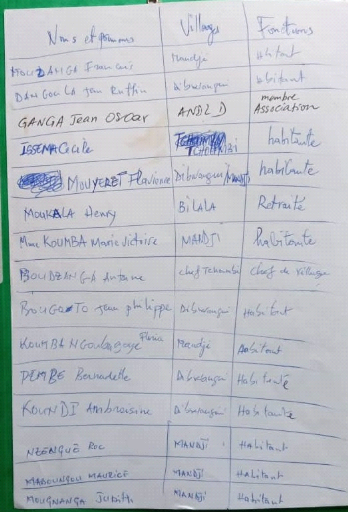 Noms et prénoms Villages Fonctions
MOUZANGA Francis Mandji
DANGOULA Jean Ruffin Dibwangui Habitant
GANGA Jean Oscar ANDZD membre Association
ISSEMA Cecile habitante
MOUYERET Flavienne Dibwangui habitante
MOUKALA Henry BILALA Retraité
Mme KOUMBA Marie victoire MANDJI habitante
BOUDZANGA Antoine chef Tchoumba Chef de village
jean philippe Dibwangui Habitant
KOUMBA Mandji Habitant
PEMBE Bernadette Dibwangui Habitante
KOUNDI Ambroisine Dibwangui Habitante
NZENGUE Roc MANDJI Habitant
MABOUNGOU MAURICE MANDJI Habitant
MOUGNANGA Judith MANDJI Habitant